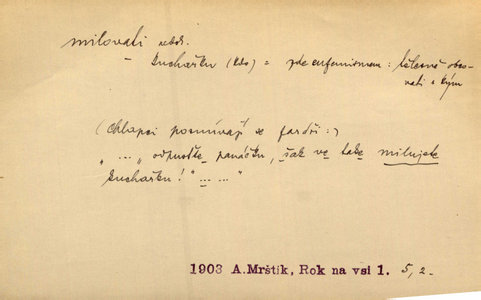 milovati někdo.
– kuchařku (kdo) = zde eufemismem: tělesně obco-
vati s kým
(Chlapci posmívají se faráři:)
„ ... „ odpusťte, panáčku, šak ve také milujete
kuchařku! " ... ... "
1903 A. Mrštík, Rok na vsi 1. 5, 2.